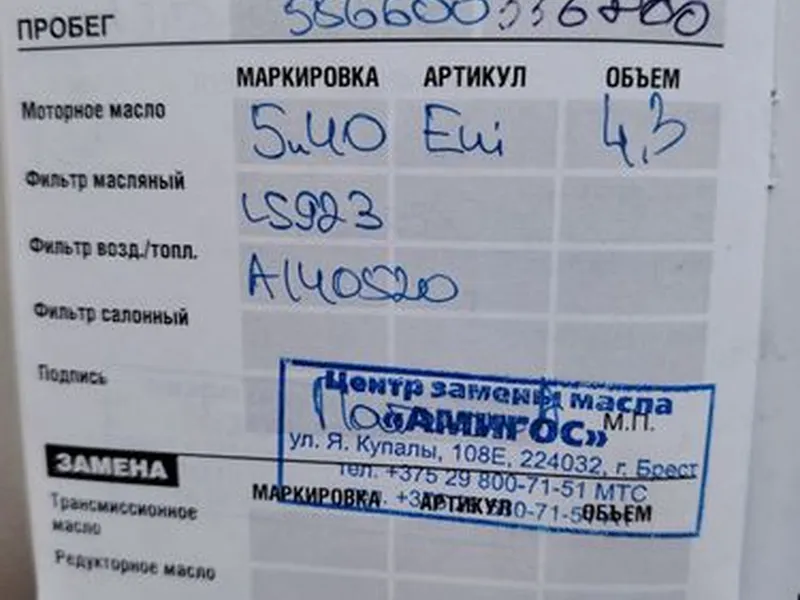 ПРОБЕГ 386600
МАРКИРОВКА АРТИКУЛ ОБЪЕМ
Моторное масло 5w40 Eni 4,3
Фильтр масляный LS923
Фильтр возд./топл. A140520
Фильтр салонный
Подпись
Центр замены масла
«АМИГОС» М.П.
ул. Я. Купалы, 108Е, 224032, г. Брест
тел. +375 29 800-71-51 МТС
ЗАМЕНА
МАРКИРОВКА АРТИКУЛ ОБЪЕМ
Трансмиссионное
масло
Редукторное масло